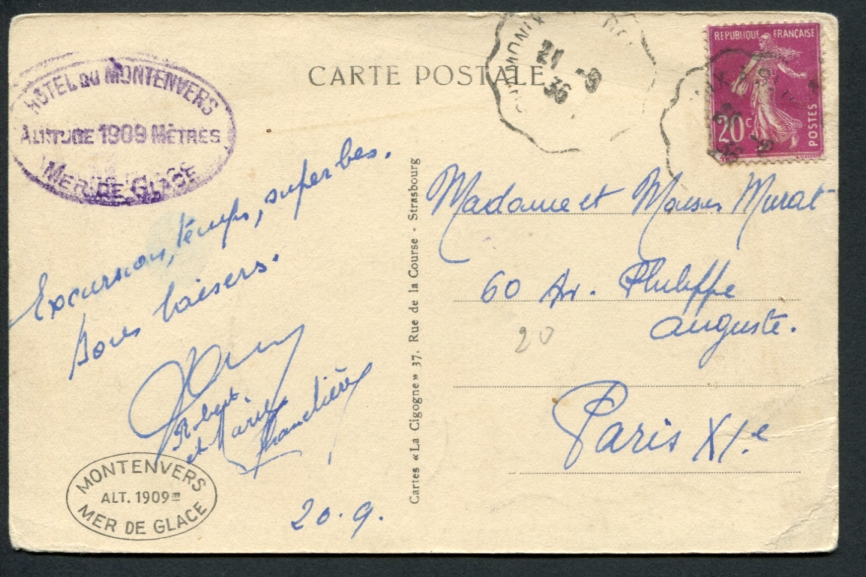 CARTE POSTALE
HÔTEL DU MONTENVERS
ALTITUDE 1909 MÈTRES
MER DE GLACE
21 - 9
36
RÉPUBLIQUE FRANÇAISE
20c
POSTES
Excursion, temps, superbes.
Bons baisers.
Robert
et Marie
20.9.
MONTENVERS
ALT. 1909m
MER DE GLACE
Cartes « La Cigogne » 37, Rue de la Course - Strasbourg
Madame et Murat
60 Av. Philippe
auguste.
20
Paris XIe